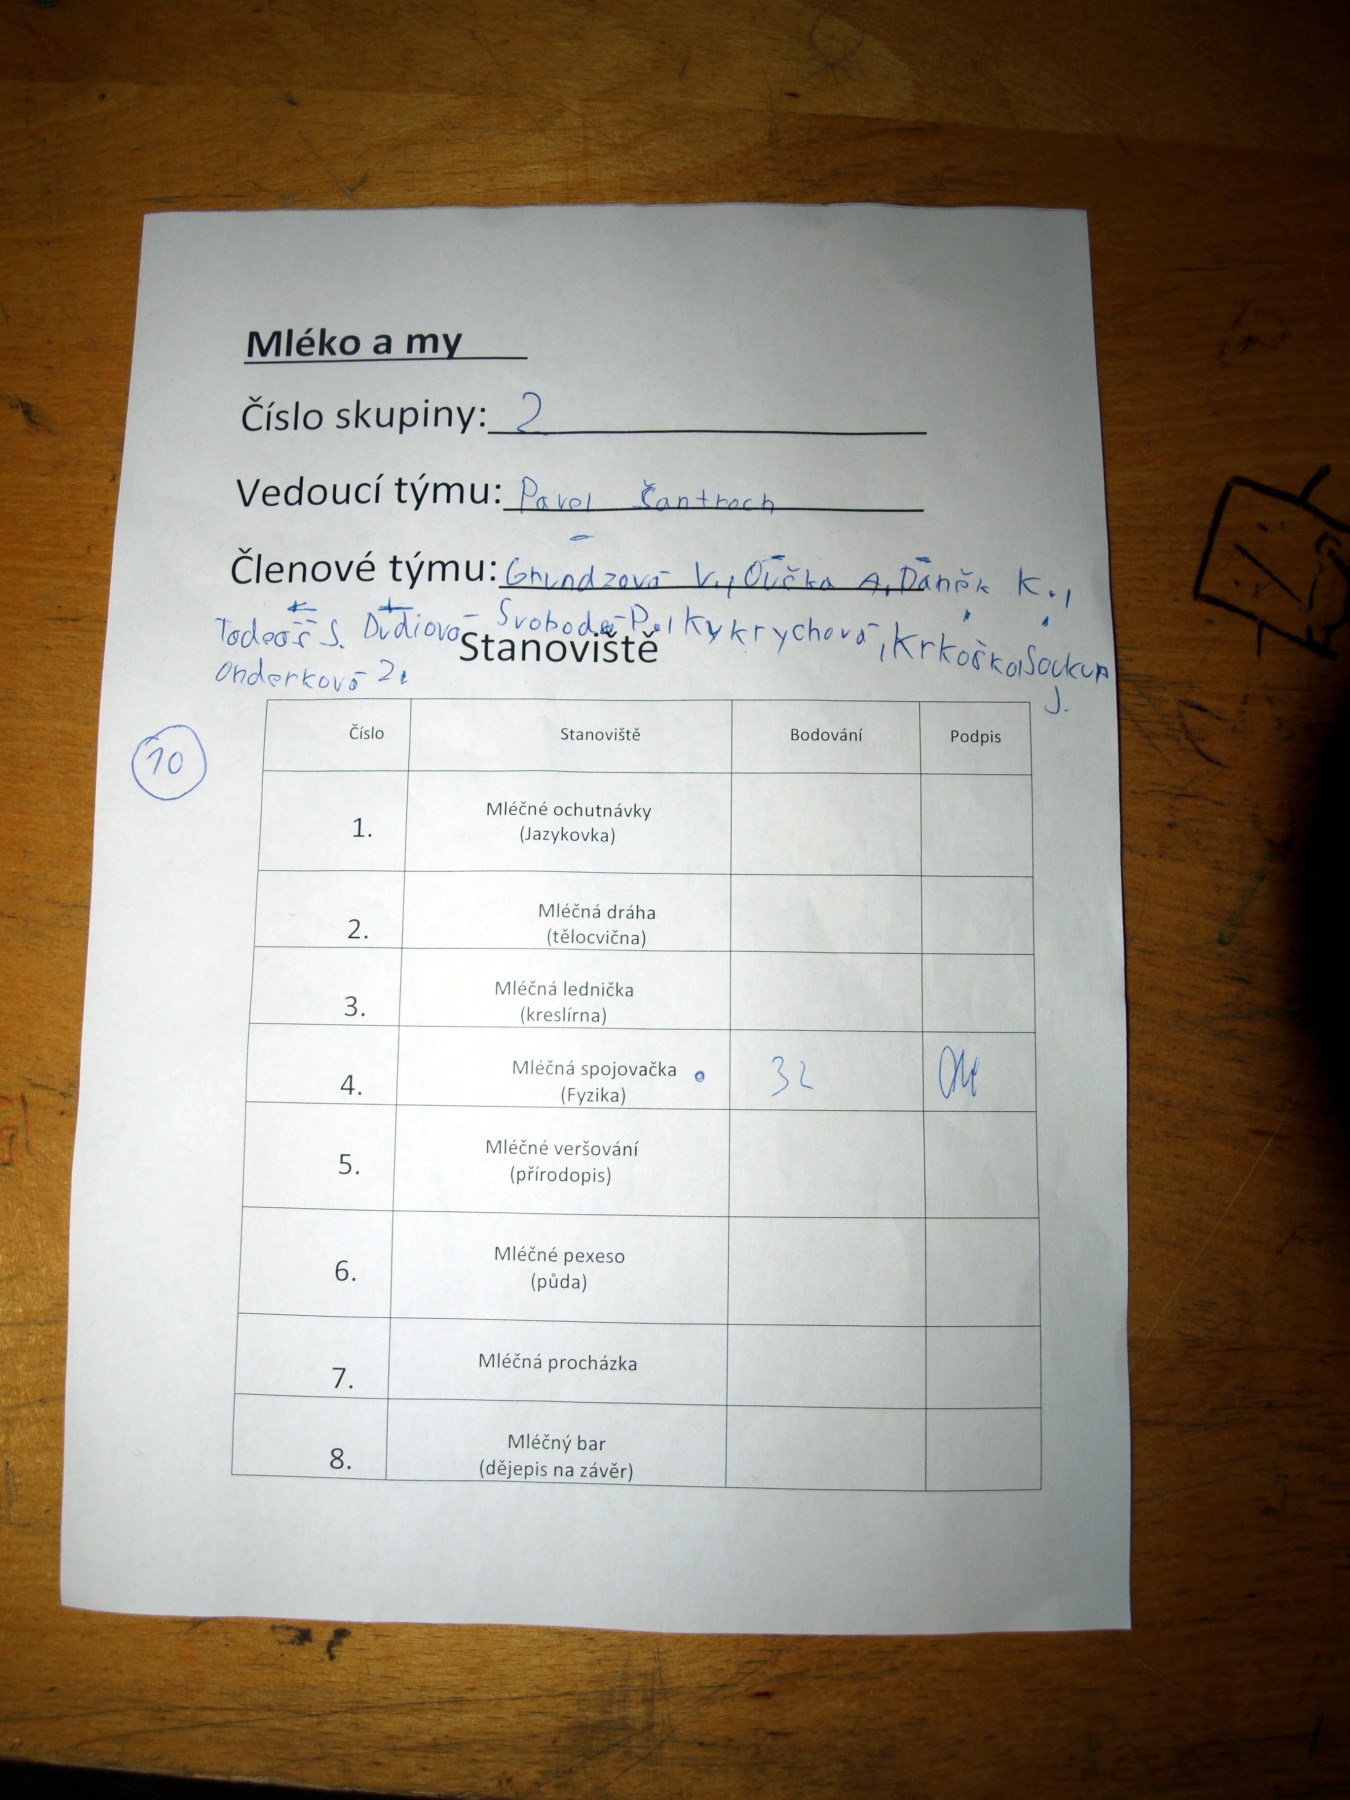 Mléko a my
Číslo skupiny: 2
Vedoucí týmu: Pavel Šantroch
Členové týmu: Grundzová V., Ovčka A, Daněk K.,
Tadeáš S. Svoboda P., Kykrychová, Krkoška, Soukup
J.
Onderková Z.
Stanoviště
10
Číslo Stanoviště Bodování Podpis
1. Mléčné ochutnávky
(Jazykovka)
2. Mléčná dráha
(tělocvična)
3. Mléčná lednička
(kreslírna)
4. Mléčná spojovačka 32
(Fyzika)
5. Mléčné veršování
(přírodopis)
6. Mléčné pexeso
(půda)
7. Mléčná procházka
8. Mléčný bar
(dějepis na závěr)